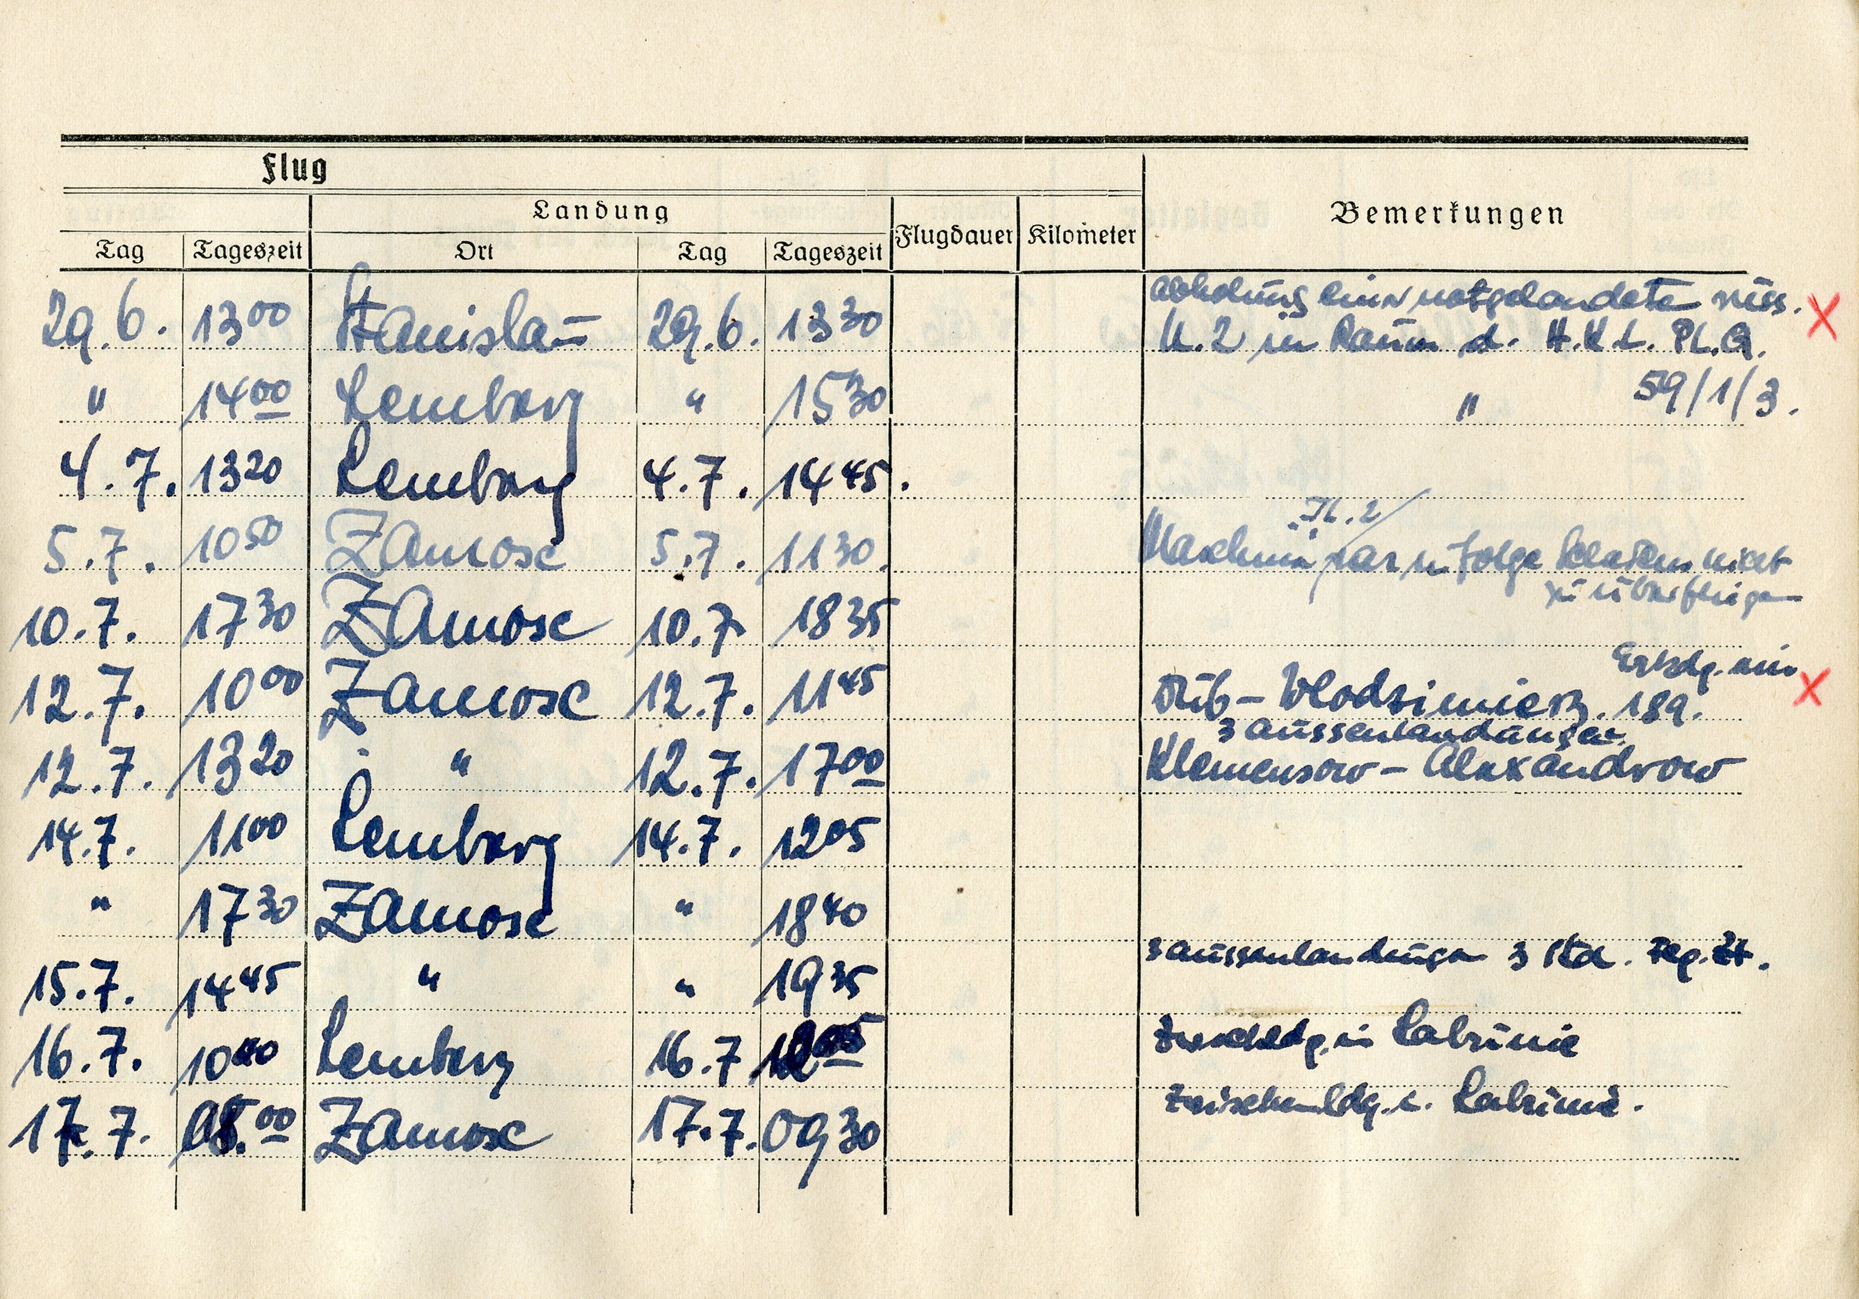 Flug
Landung
Flugdauer Kilometer Bemerkungen
Tag Tageszeit Ort Tag Tageszeit
Abholung einer notgelandeten russ.
29.6. 13 00 Stanislau 29.6. 13 30 U.2 im Raum d. H.K.L. Pl.Q.
59/1/3.
" 14 00 Lemberg " 15 30 "
4.7. 13 20 Lemberg 4.7. 14 45.
5.7. 10 50 Zamosc 5.7. 11 30. Maschine war infolge nicht
zu überfliegen
10.7. 17 30 Zamosc 10.7 18 35
12.7. 10 00 Zamosc 12.7. 11 45 Wlodzimierz. 189.
3 Aussenlandungen
12.7. 13 20 " 12.7. 17 00 Klemensow - Alexandrow
14.7. 11 00 Lemberg 14.7. 12 05
" 17 30 Zamosc " 18 40
3 Aussenlandungen 3 Std.
15.7. 14 45 " " 19 35
16.7. 10 40 Lemberg 16.7 in Labunie
17.7. 08.00 Zamosc 17.7. 09 30 Zwischenldg. i. Labunie.